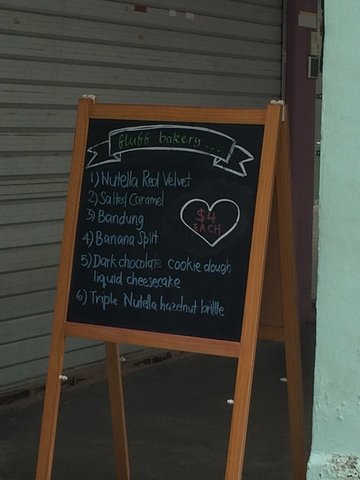 fluff bakery...
1) Nutella Red Velvet
2) Salted Caramel
3) Bandung
$4
EACH
4) Banana Split
5) Dark chocolate cookie dough
liquid cheesecake
6) Triple Nutella hazelnut brittle